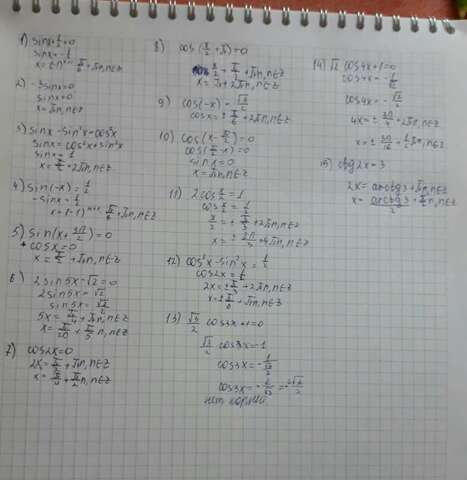 1) sinx+1/2=0
sinx=-1/2
x=(-1)ⁿ⁺¹ π/6+πn, n∈z
2) -3sinx=0
sinx=0
x=πn, n∈z
3) sinx-sin²x=cos²x
sinx=cos²x+sin²x
sinx=1
x=π/2+2πn, n∈z
4) sin(-x)=1/2
-sinx=1/2
x=(-1)ⁿ⁺¹ π/6+πn, n∈z
5) sin(x+3π/2)=0
cosx=0
x=π/2+πn, n∈z
6) 2sin5x-√2=0
2sin5x=√2
sin5x=√2/2
5x=π/4+πn, n∈z
x=π/20+π/5 n, n∈z
7) cos2x=0
2x=π/2+πn, n∈z
x=π/4+π/2 n, n∈z
8) cos(x/2+π)=0
x/2=π/2+πn, n∈z
x=π+2πn, n∈z
9) cos(-x)=√3/2
cosx=±π/6+2πn, n∈z
10) cos(x-π/2)=0
cos(π/2-x)=0
sinx=0
x=πn, n∈z
11) 2cos x/2=1
cos x/2=1/2
x/2=±π/3+2πn, n∈z
x=±2π/3+4πn, n∈z
12) cos²x-sin²x=1/2
cos2x=1/2
2x=±π/3+2πn, n∈z
x=±π/6+πn, n∈z
13) √3/2 cos3x+1=0
cos3x=-1
нет корней
14) √2 cos4x+1=0
cos4x=-1/√2
cos4x=-√2/2
4x=±3π/4+2πn, n∈z
x=±3π/16+π/2 n, n∈z
15) ctg2x=3
2x=arcctg3+πn, n∈z
x=arcctg3/2+π/2 n, n∈z